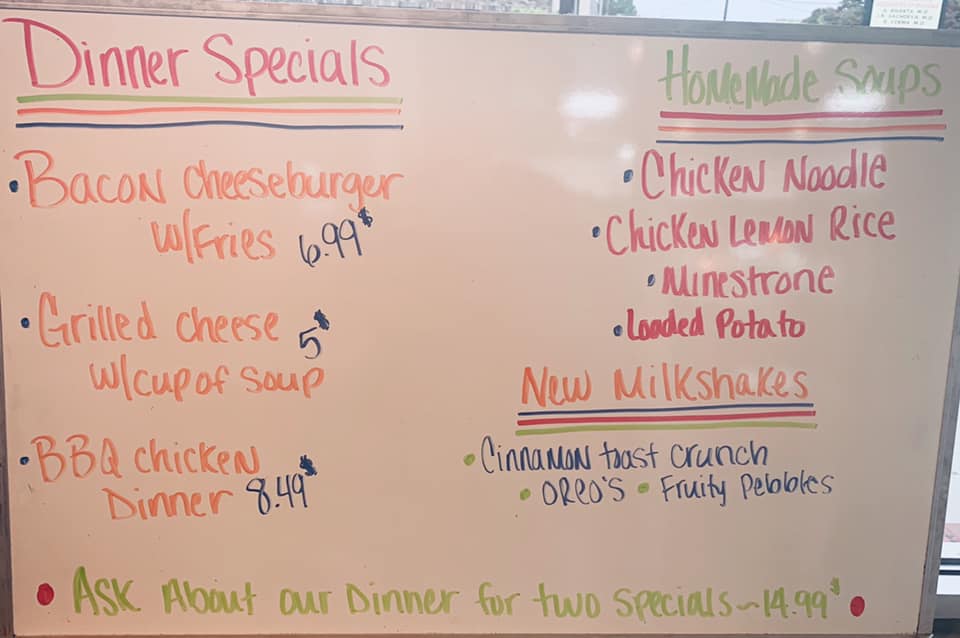 Dinner Specials
• Bacon cheeseburger
w/Fries 6.99$
• Grilled cheese 5$
w/cup of soup
• BBQ chicken
Dinner 8.49$
HomeMade Soups
• Chicken Noodle
• Chicken Lemon Rice
• Minestrone
• Loaded Potato
New Milkshakes
• Cinnamon toast crunch
• OREO'S • Fruity Pebbles
• Ask About our Dinner for two specials ~ 14.99$ •